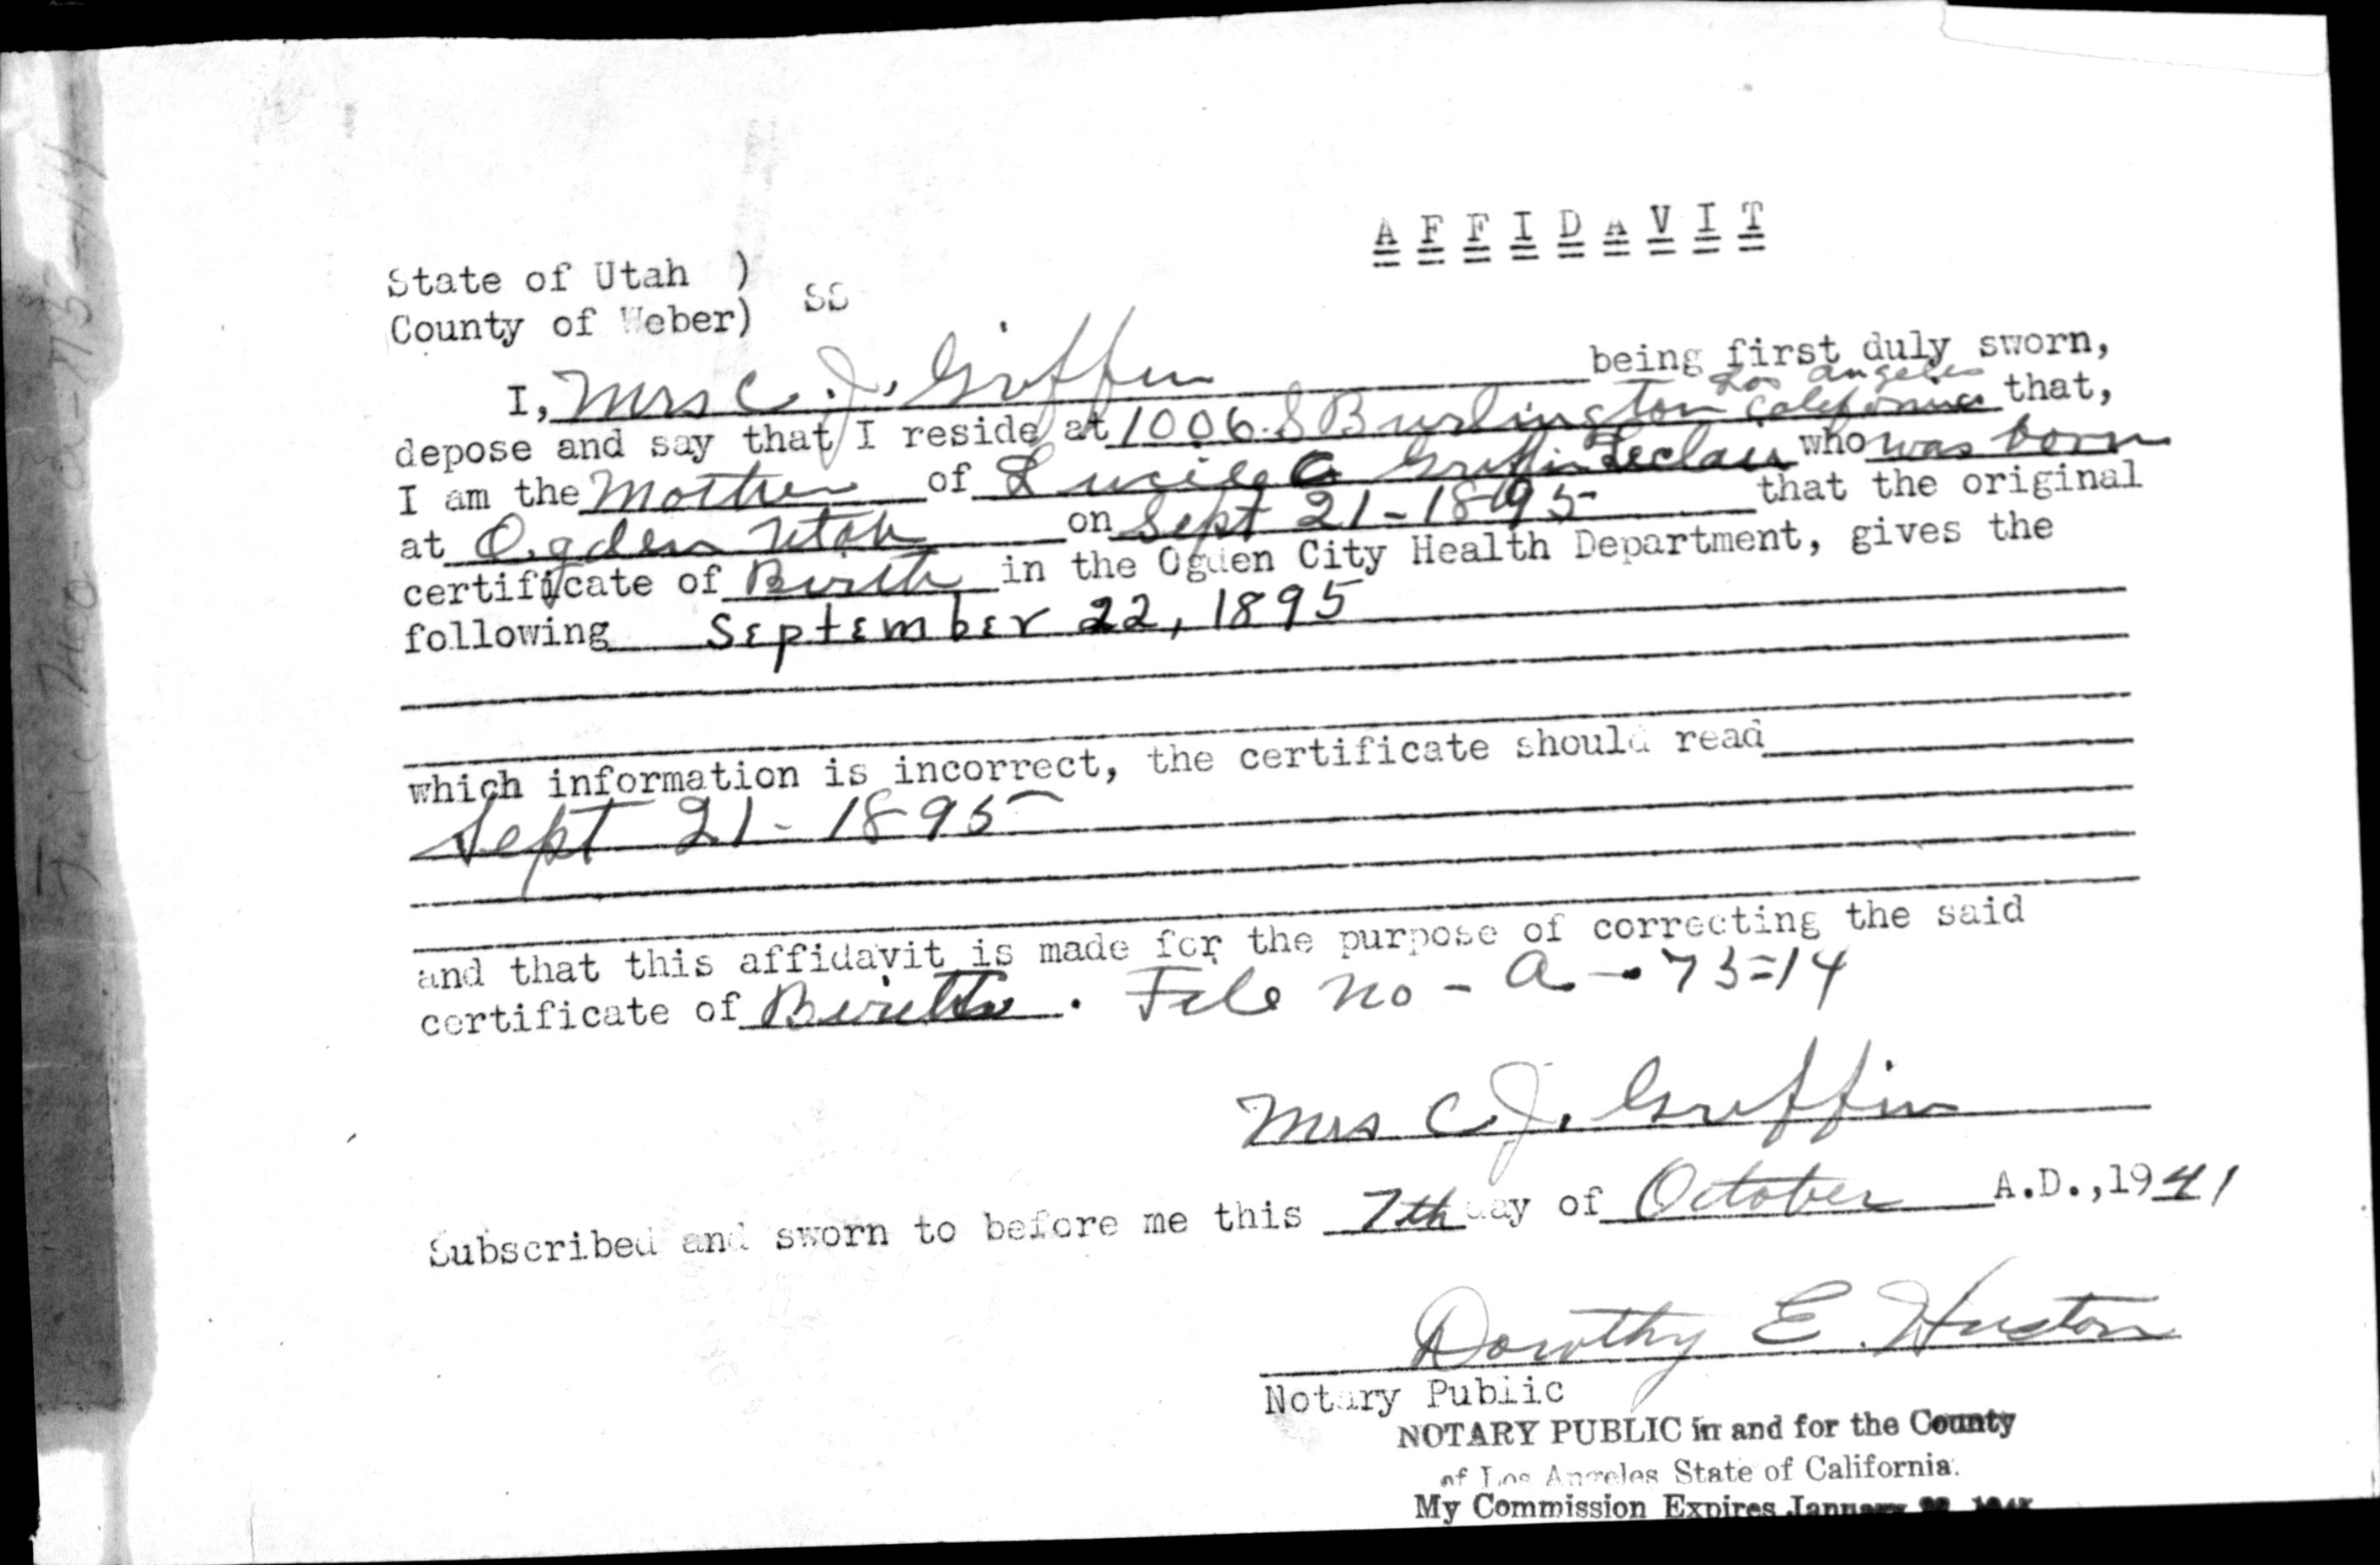 AFFIDAVIT
State of Utah )
County of Weber) SS
I, Mrs C. J. Griffin being first duly sworn,
depose and say that I reside at 1006 S Burlington Los Angeles California that,
I am the Mother of Lucile G Griffin Leclair who was born
at Ogden Utah on Sept 21-1895 that the original
certificate of Birth in the Ogden City Health Department, gives the
following September 22, 1895
which information is incorrect, the certificate should read
Sept 21-1895
and that this affidavit is made for the purpose of correcting the said
certificate of Birth. File no - a - 73=14
Mrs C. J. Griffin
Subscribed and sworn to before me this 7th day of October A.D.,1941
Dorothy E. Huston
Notary Public
NOTARY PUBLIC in and for the County
of Los Angeles State of California.
My Commission Expires January